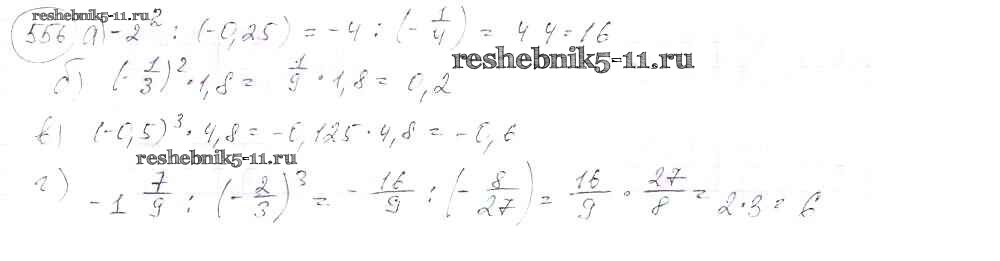 reshebnik5-11.ru
556 а) -2² : (-0,25) = -4 : (-1/4) = 4 4 = 16
reshebnik5-11.ru
б) (-1/3)² · 1,8 = 1/9 · 1,8 = 0,2
в) (-0,5)³ · 4,8 = -0,125 · 4,8 = -0,6
reshebnik5-11.ru
г) -1 7/9 : (-2/3)³ = -16/9 : (-8/27) = 16/9 · 27/8 = 2·3 = 6